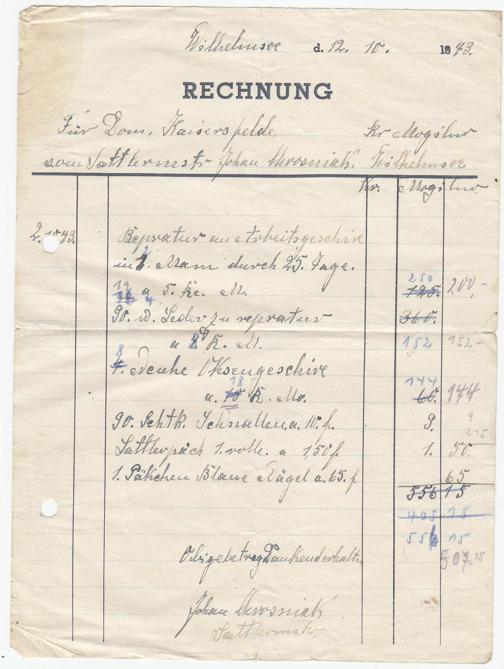 Wilhelmsee d. 12. 10. 1943.
RECHNUNG
Für Dom. Kaisersfelde Kr Mogilno
vom Sattlermstr Johan Mrosniak. Wilhelmsee
Kr. Mogilno
2. 10 43 Repratur an Arbeitsgeschire
Mann durch 25. Tage. 250
a 5. M. 125. 200,-
90. Leder zu repratur 360.
a M. 152 152-
8 Neuhe Ohksengeschire 144
a. 18 66. 144
90. Schtk. Schnallen a. 10. f. 9. 9
Sattlerpäch 1. rolle. a 1,50 f 1. 50.
1. Päkchen Blaue Nägel a. 65. f 65
556 15
408 15
556 15
507.15
Obigebetrag Dankend erhalte
Johan Mrosniak
Sattlermstr.